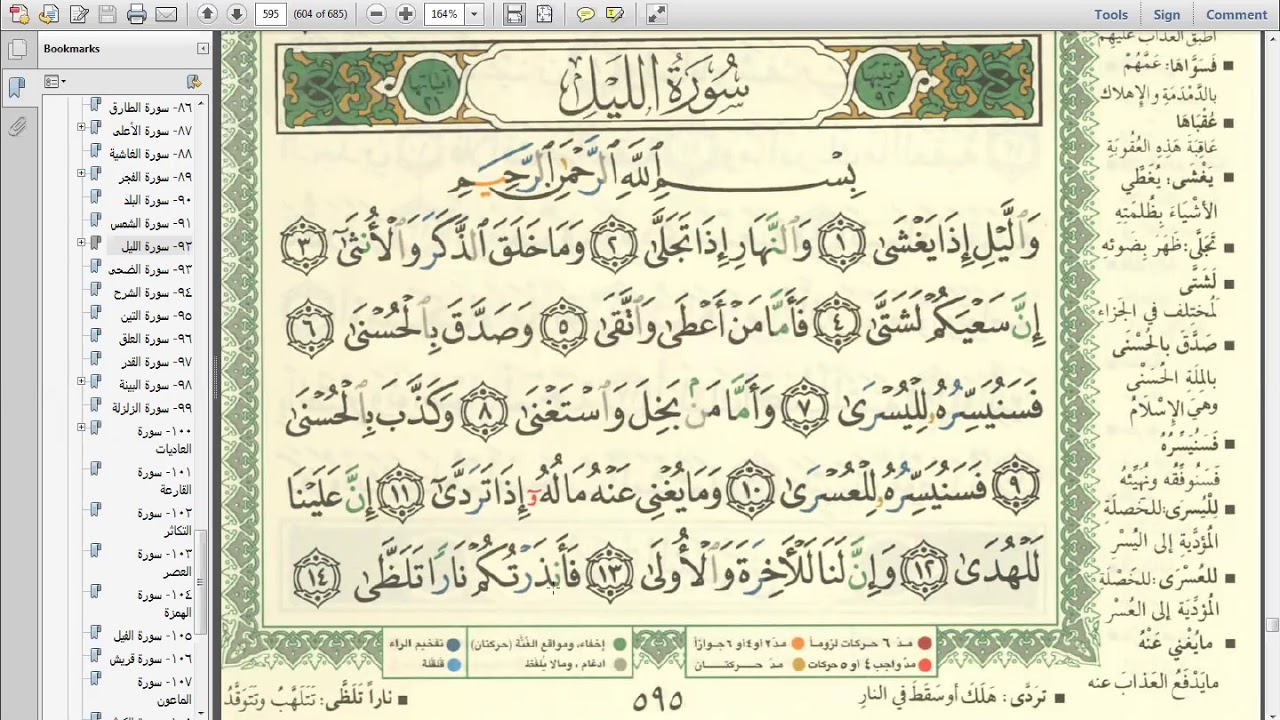 595 (604 of 685) 164% Tools Sign Comment
Bookmarks
٨٦- سورة الطارق
٨٧- سورة الأعلى
٨٨- سورة الغاشية
٨٩- سورة الفجر
٩٠- سورة البلد
٩١- سورة الشمس
٩٢- سورة الليل
٩٣- سورة الضحى
٩٤- سورة الشرح
٩٥- سورة التين
٩٦- سورة العلق
٩٧- سورة القدر
٩٨- سورة البينة
٩٩- سورة الزلزلة
١٠٠- سورة
العاديات
١٠١- سورة
القارعة
١٠٢- سورة
التكاثر
١٠٣- سورة
العصر
١٠٤- سورة
الهمزة
١٠٥- سورة الفيل
١٠٦- سورة قريش
١٠٧- سورة
الماعون
ترتيبها ٩٢ سُورَةُ اللَّيْل آياتها ٢١
بِسْمِ ٱللَّهِ ٱلرَّحْمَٰنِ ٱلرَّحِيمِ
وَٱلَّيْلِ إِذَا يَغْشَىٰ ١ وَٱلنَّهَارِ إِذَا تَجَلَّىٰ ٢ وَمَا خَلَقَ ٱلذَّكَرَ وَٱلْأُنثَىٰٓ ٣
إِنَّ سَعْيَكُمْ لَشَتَّىٰ ٤ فَأَمَّا مَنْ أَعْطَىٰ وَٱتَّقَىٰ ٥ وَصَدَّقَ بِٱلْحُسْنَىٰ ٦
فَسَنُيَسِّرُهُۥ لِلْيُسْرَىٰ ٧ وَأَمَّا مَنۢ بَخِلَ وَٱسْتَغْنَىٰ ٨ وَكَذَّبَ بِٱلْحُسْنَىٰ
٩ فَسَنُيَسِّرُهُۥ لِلْعُسْرَىٰ ١٠ وَمَا يُغْنِي عَنْهُ مَالُهُۥٓ إِذَا تَرَدَّىٰٓ ١١ إِنَّ عَلَيْنَا
لَلْهُدَىٰ ١٢ وَإِنَّ لَنَا لَلْـَٔاخِرَةَ وَٱلْأُولَىٰ ١٣ فَأَنذَرْتُكُمْ نَارًا تَلَظَّىٰ ١٤
أطبق العذاب عليهم
فَسَوَّاهَا: عَمَّهُمْ
بالدَّمْدَمَةِ والإهلاك
عُقْبَاهَا
عَاقِبَةَ هَذِهِ العُقُوبَةِ
يَغْشَى: يُغَطِّي
الأشْيَاءَ بِظُلْمَتِهِ
تَجَلَّى: ظَهَرَ بِضَوئِهِ
لَشَتَّى
لَمُختلف في الجَزاء
صَدَّقَ بالحُسْنَى
بالمِلّةِ الحُسْنَى
وهيَ الإِسْلَامُ
فَسَنُيَسِّرُهُ
فَسَنُوفِّقُه ونُهَيِّئُه
لِلْيُسرى: للخَصْلَةِ
المُؤَدِّيَةِ إلى اليُسْرِ
للعُسْرَى: للخَصْلَة
المُؤدِّيَة إلى العُسْر
مايُغْني عَنْهُ
مايَدْفَعُ العَذابَ عنه
مدّ ٦ حركات لزوماً مدّ ٢ او ٤ او ٦ جوازاً
مدّ واجب ٤ او ٥ حركات مدّ حركتان
إخفاء، ومواقع الغُنَّة (حركتان) تفخيم الراء
ادغام، ومالا يُلفظ قلقلة
تَردَّى: هَلَكَ أو سَقَطَ في النارِ ٥٩٥ ناراً تَلَظَّى: تَتَلَهَّبُ وتَتَوَقَّدُ